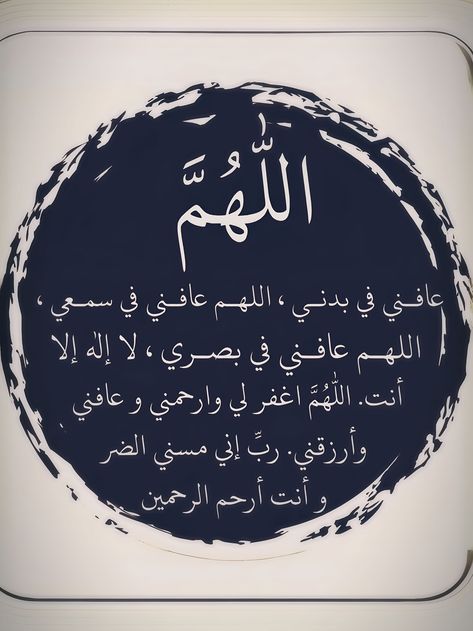 اللّٰهُمَّ
عافـني في بدنـي ، اللهـم عافـني في سمـعي ،
اللهـم عافـني في بصـري ، لا إلٰه إلا
أنت. اللّٰهُمَّ اغفر لي وارحمني و عافني
وأرزقني. ربِّ إني مسني الضر
و أنت أرحم الرحمين